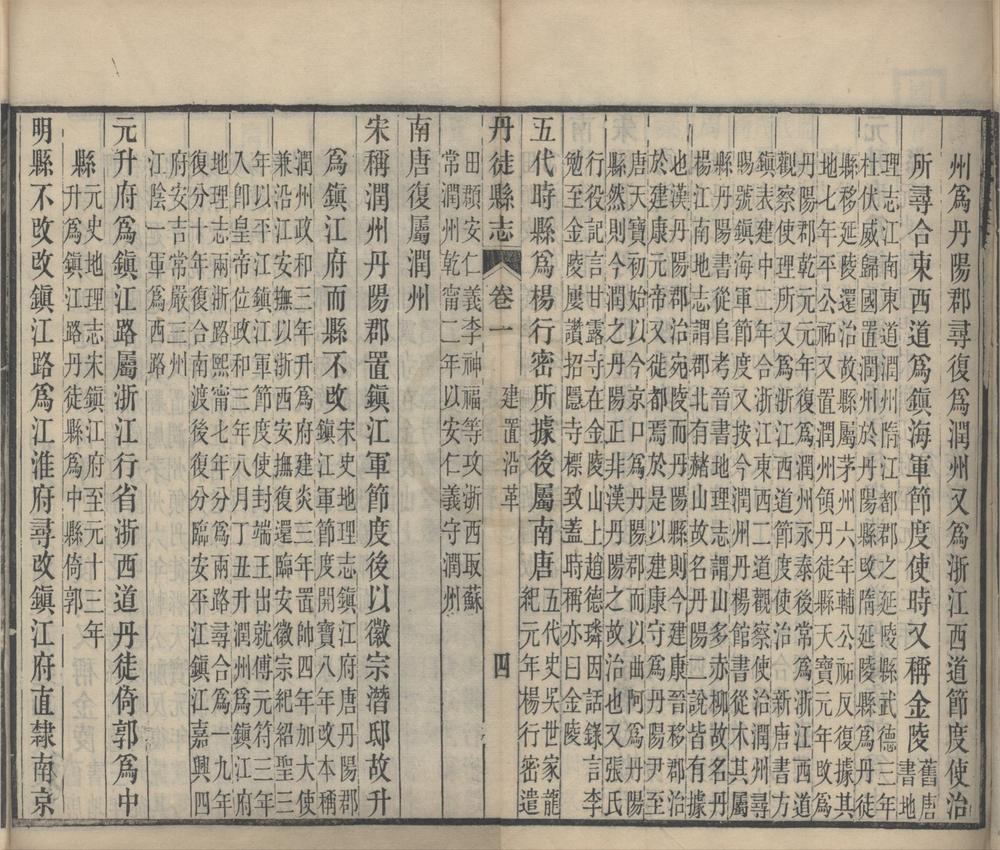 州爲丹陽郡尋復爲潤州又爲浙江西道節度使治
所尋合東西道爲鎮海軍節度使時又稱金陵
舊唐
書地
理志江南東道潤州隋江都郡之延陵縣武德三年
杜伏威歸國置潤州於丹陽縣改隋延陵縣爲丹徒
縣移延陵還治故縣屬茅州六年輔公祏反復據其
地七年平公祏又置潤州領丹徒縣天寶元年改爲
丹陽郡乾元元年復爲潤州永泰後常爲浙江西道
觀察使理所又爲浙江西道節度使治 新唐書方
鎮表建中二年合浙江東西二道觀察使治潤州尋
賜號鎮海軍節度又按今潤州丹楊館書從木其屬
縣丹陽書從阜考晉書地理志謂山多赤柳故名丹
楊江南地志謂郡北有赭山故名丹陽二說皆有據
也漢丹陽郡治宛陵而丹陽縣則今建康晉移郡治
於建康元帝又徙都焉於是以建康守爲丹陽尹至
唐天寶初始以今京口爲丹陽郡而以曲阿爲丹陽
縣然則今潤之丹陽正非漢丹陽之故治也又張氏
行役記言甘露寺在金陵山上趙德璘因話錄言李
勉至金陵屢讚招隱寺標致蓋時稱亦曰金陵
五代時縣爲楊行密所據後屬南唐
五代史吳世家龍
紀元年楊行密遣
丹徒縣志 卷一 建置沿革 四
田頵安仁義李神福等攻浙西取蘇
常潤州乾甯二年以安仁義守潤州
南唐復屬潤州
宋稱潤州丹陽郡置鎮江軍節度後以徽宗潛邸故升
爲鎮江府而縣不改
宋史地理志鎮江府唐丹陽郡
鎮江軍節度開寶八年改本稱
潤州政和三年升爲府建炎三年置帥四年加大使
兼沿江安撫以浙西安撫復還臨安徽宗紀紹聖三
年以平江鎮江軍節度使封端王出就傅元符三年
入卽皇帝位政和三年八月丁丑升潤州爲鎮江府
地理志兩浙路熙甯七年分爲兩路尋合爲一九年
復分十年復合南渡後復分臨安平江鎮江嘉興四
府安吉常嚴三州
江陰一軍爲西路
元升府爲鎮江路屬浙江行省浙西道丹徒倚郭爲中
縣
元史地理志宋鎮江府至元十三年
升爲鎮江路丹徒縣爲中縣倚郭
明縣不改改鎮江路爲江淮府尋改鎮江府直隸南京